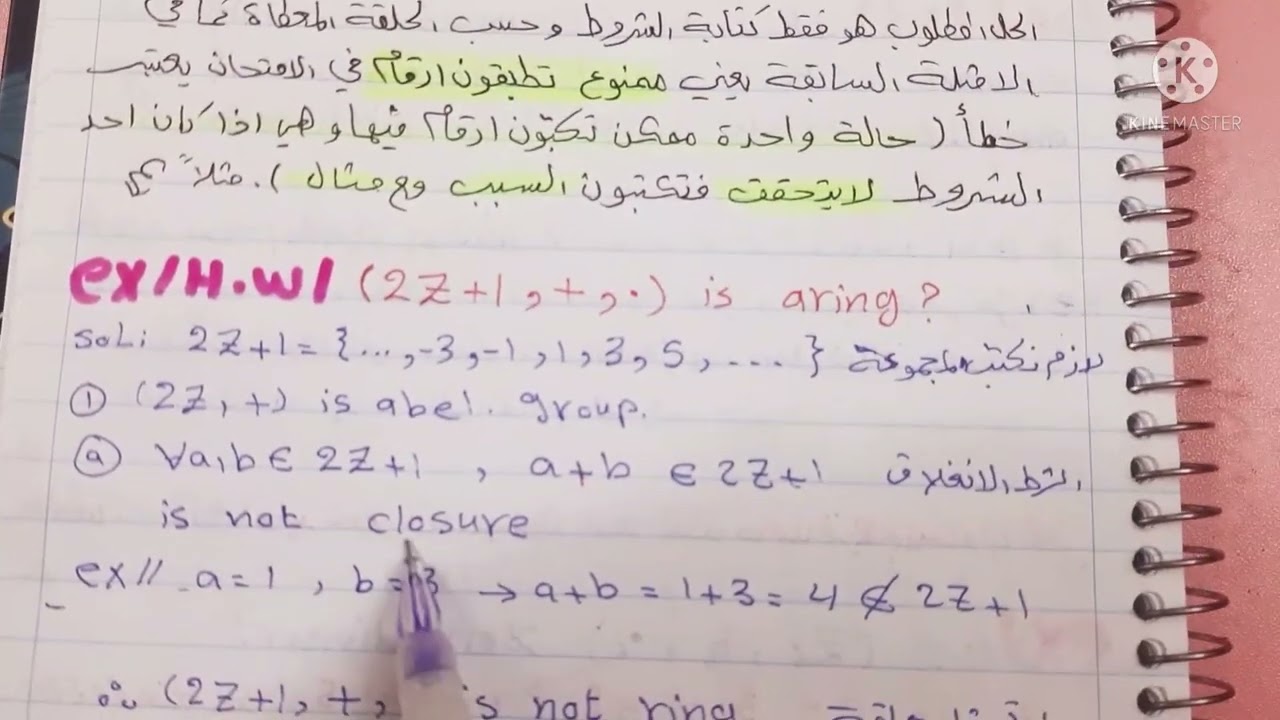 الحل المطلوب هو فقط كتابة الشروط وحسب الحلقة المعطاة كما في
الامثلة السابقة يعني ممنوع تطبقون ارقام في الامتحان يعتبر
خطأ ( حالة واحدة ممكن تكتبون ارقام فيها وهي اذا كان احد
الشروط لايتحقق فتكتبون السبب مع مثال ). مثلاً
K
KINEMASTER
ex/H.w/ (2Z+1,+,.) is aring?
sol: 2Z+1={...,-3,-1,1,3,5,....} لازم نكتب المجموعة
① (2Z,+) is abel. group.
ⓐ ∀a,b∈ 2Z+1 , a+b ∈ 2Z+1 الشرط الانغلاق
is not closure
ex// a=1 , b=3 → a+b = 1+3= 4 ∉ 2Z+1
∴ (2Z+1, +, is not ring